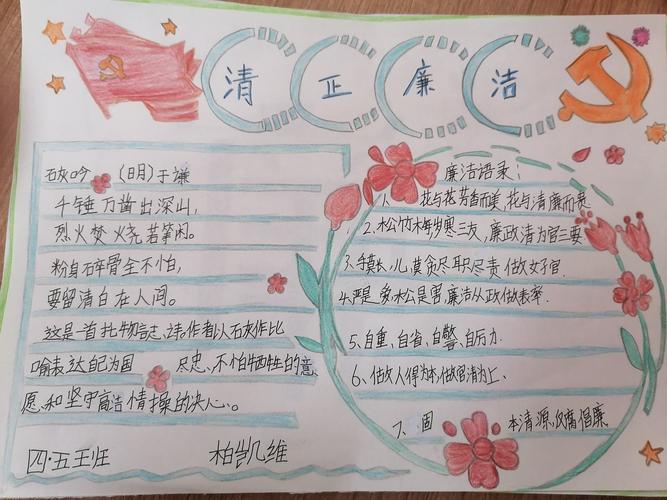 清正廉洁
石灰吟 (明)于谦
千锤万凿出深山,
烈火焚烧若等闲。
粉身碎骨全不怕,
要留清白在人间。
这是一首托物言志、诗作者以石灰作比
喻表达自己为国 尽忠、不怕牺牲的意
愿,和坚守高洁情操的决心。
四·五王班 柏凯维
廉洁语录:
1 花与花芳香而美,花与清廉而美
2.松竹梅岁寒三友,廉政清为官三要
3. 莫贪尽职尽责做好官.
4.严是 多松是害,廉洁从政做表率.
5、自重、自省、自警、自厉力.
6、做人得为本,做官清为上、
7、固 本清源,反腐倡廉